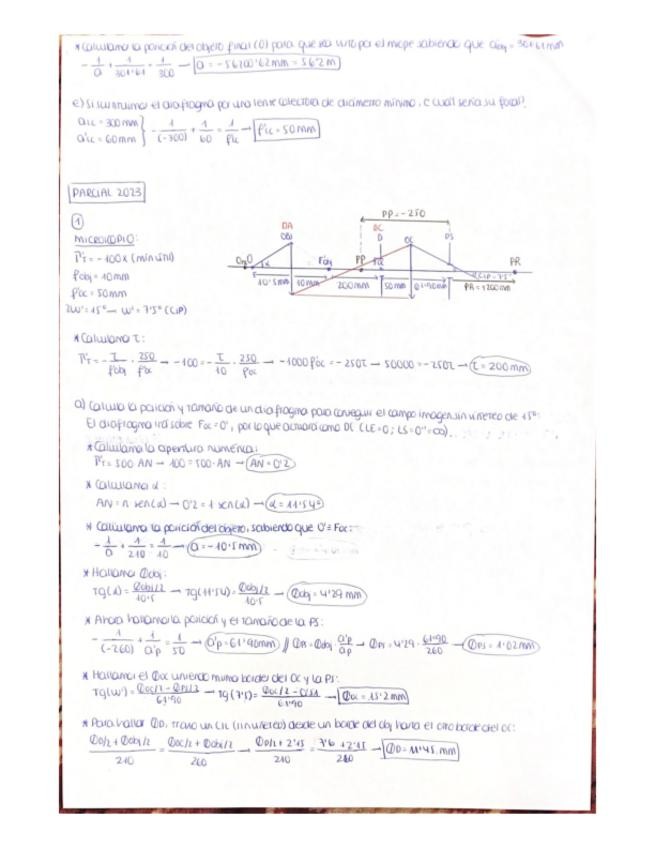 * Calculamos la posición del objeto final (O) para que sea visto por el miope sabiendo que a'obj = 301'61 mm
- 1/a + 1/301'61 = 1/300 → a = -56200'62mm = 56'2m
e) Si sustituimos el diafragma por una lente colectora de diámetro mínimo, ¿cuál sería su focal?
a LC = 300mm } - 1/(-300) + 1/60 = 1/f'LC → f'LC = 50mm
a'LC = 60mm
PARCIAL 2023
①
MICROSCOPIO:
Γ'T = -100x (mínimo)
f'obj = 10mm
f'oc = 50mm
2W' = 15° → W' = 7'5° (CIP)
PP = -250
DA
OBJ
DC
D
OC
PS
O
F'obj
PP
PR
10'5mm
10mm
200mm
50mm
61'90mm
PR = +200mm
CIP = 7'5°
* Calculamos τ:
Γ'T = - τ/f'obj · 250/f'oc → -100 = - τ/10 · 250/f'oc → -1000f'oc = -250τ → 50000 = -250τ → τ = 200mm
a) Calcula la posición y tamaño de un diafragma para conseguir el campo imagen sin viñeteo de 15°:
El diafragma irá sobre Foc = O', por lo que actuará como DC (LE = O ; LS = O'' = ∞).
* Calculamos la apertura numérica:
Γ'T = 500 AN → 100 = 500 · AN → AN = 0'2
* Calculamos α:
AN = n sen(α) → 0'2 = 1 sen(α) → α = 11'54°
* Calculamos la posición del objeto, sabiendo que O' ≡ Foc:
- 1/a + 1/210 = 1/10 → a = -10'5mm
* Hallamos Φobj:
Tg(α) = Φobj/2 / 10'5 → Tg(11'54) = Φobj/2 / 10'5 → Φobj = 4'29mm
* Ahora hallamos la posición y el tamaño de la PS:
- 1/(-260) + 1/a'p = 1/50 → a'p = 61'90mm // ΦPS = Φobj · a'p/ap → ΦPS = 4'29 · 61'90/260 → ΦPS = 1'02mm
* Hallamos el Φoc uniendo mismo bordes del OC y la PS:
Tg(W') = Φoc/2 - ΦPS/2 / 61'90 → Tg(7'5) = Φoc/2 - 0'51 / 61'90 → Φoc = 15'2mm
* Para hallar ΦD, trazo un CIL (sin viñeteo) desde un borde del obj hasta el otro borde del OC:
ΦD/2 + Φobj/2 / 210 = Φoc/2 + Φobj/2 / 260 → ΦD/2 + 2'15 / 210 = 7'6 + 2'15 / 260 → ΦD = 11'45mm